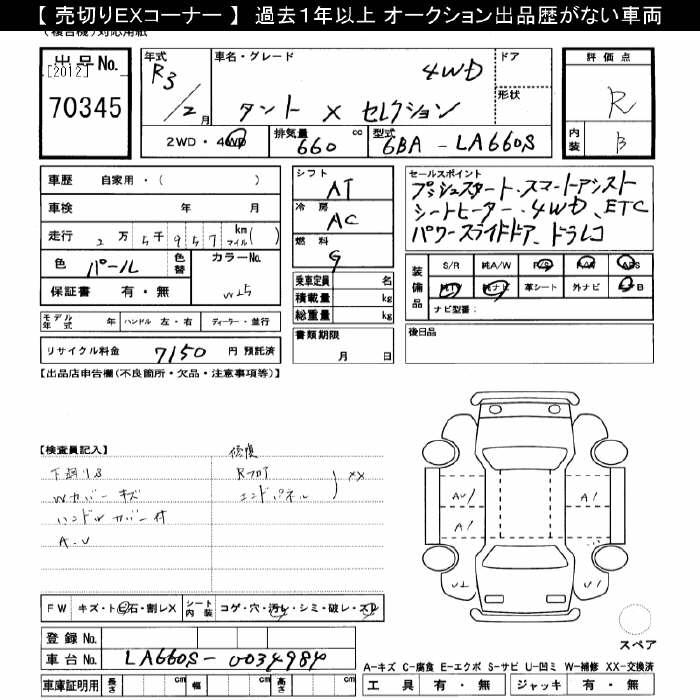 【 売切りEXコーナー 】 過去1年以上 オークション出品歴がない車両
(複合機)対応用紙
出品No. [2012] 70345
年式 R3/2月
車名・グレード 4WD
タント X セレクション
ドア
形状
2WD・4WD
排気量 660 cc
型式 6BA-LA660S
評価点 R
内装 B
車歴 自家用・( )
車検 年 月
走行 2万5千957 km マイル( )
色 パール 色替 カラーNo. W25
保証書 有・無
モデル年式 年 ハンドル 左・右 ディーラー・並行
リサイクル料金 7150 円 預託済
シフト AT
冷房 AC
燃料 G
乗車定員 名
積載量 kg
総重量 kg
書類期限 月 日
セールスポイント
プッシュスタート・スマートアシスト
シートヒーター、4WD、ETC
パワースライドドア、ドラレコ
装備品 S/R 純A/W P/S P/W ABS
純TV 純ナビ 革シート 外ナビ エアB
ナビ型番:
後日品
【出品店申告欄(不良箇所・欠品・注意事項等)】
【検査員記入】
下廻りS
Wカバーキズ
ハンドルカバー付
A.U
修復
Rフロア
エンドパネル
XX
AU
A1
A1
U2
U1
FW キズ・トビ石・割レX シート内装 コゲ・穴・汚レ・シミ・破レ・スレ
登録No.
車台No. LA660S-0034984
車庫証明用 長さ cm 幅 cm 高さ cm
スペア
A-キズ C-腐食 E-エクボ S-サビ U-凹ミ W-補修 XX-交換済
工具 有・無 ジャッキ 有・無